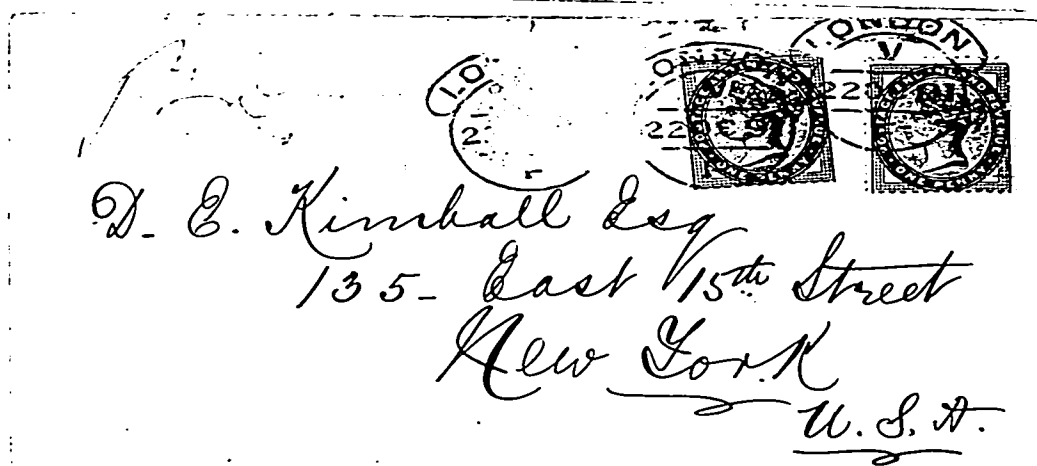 LONDON
V
22
220
D. E. Kimball Esq
135- East 15th Street
New York
U. S. A.